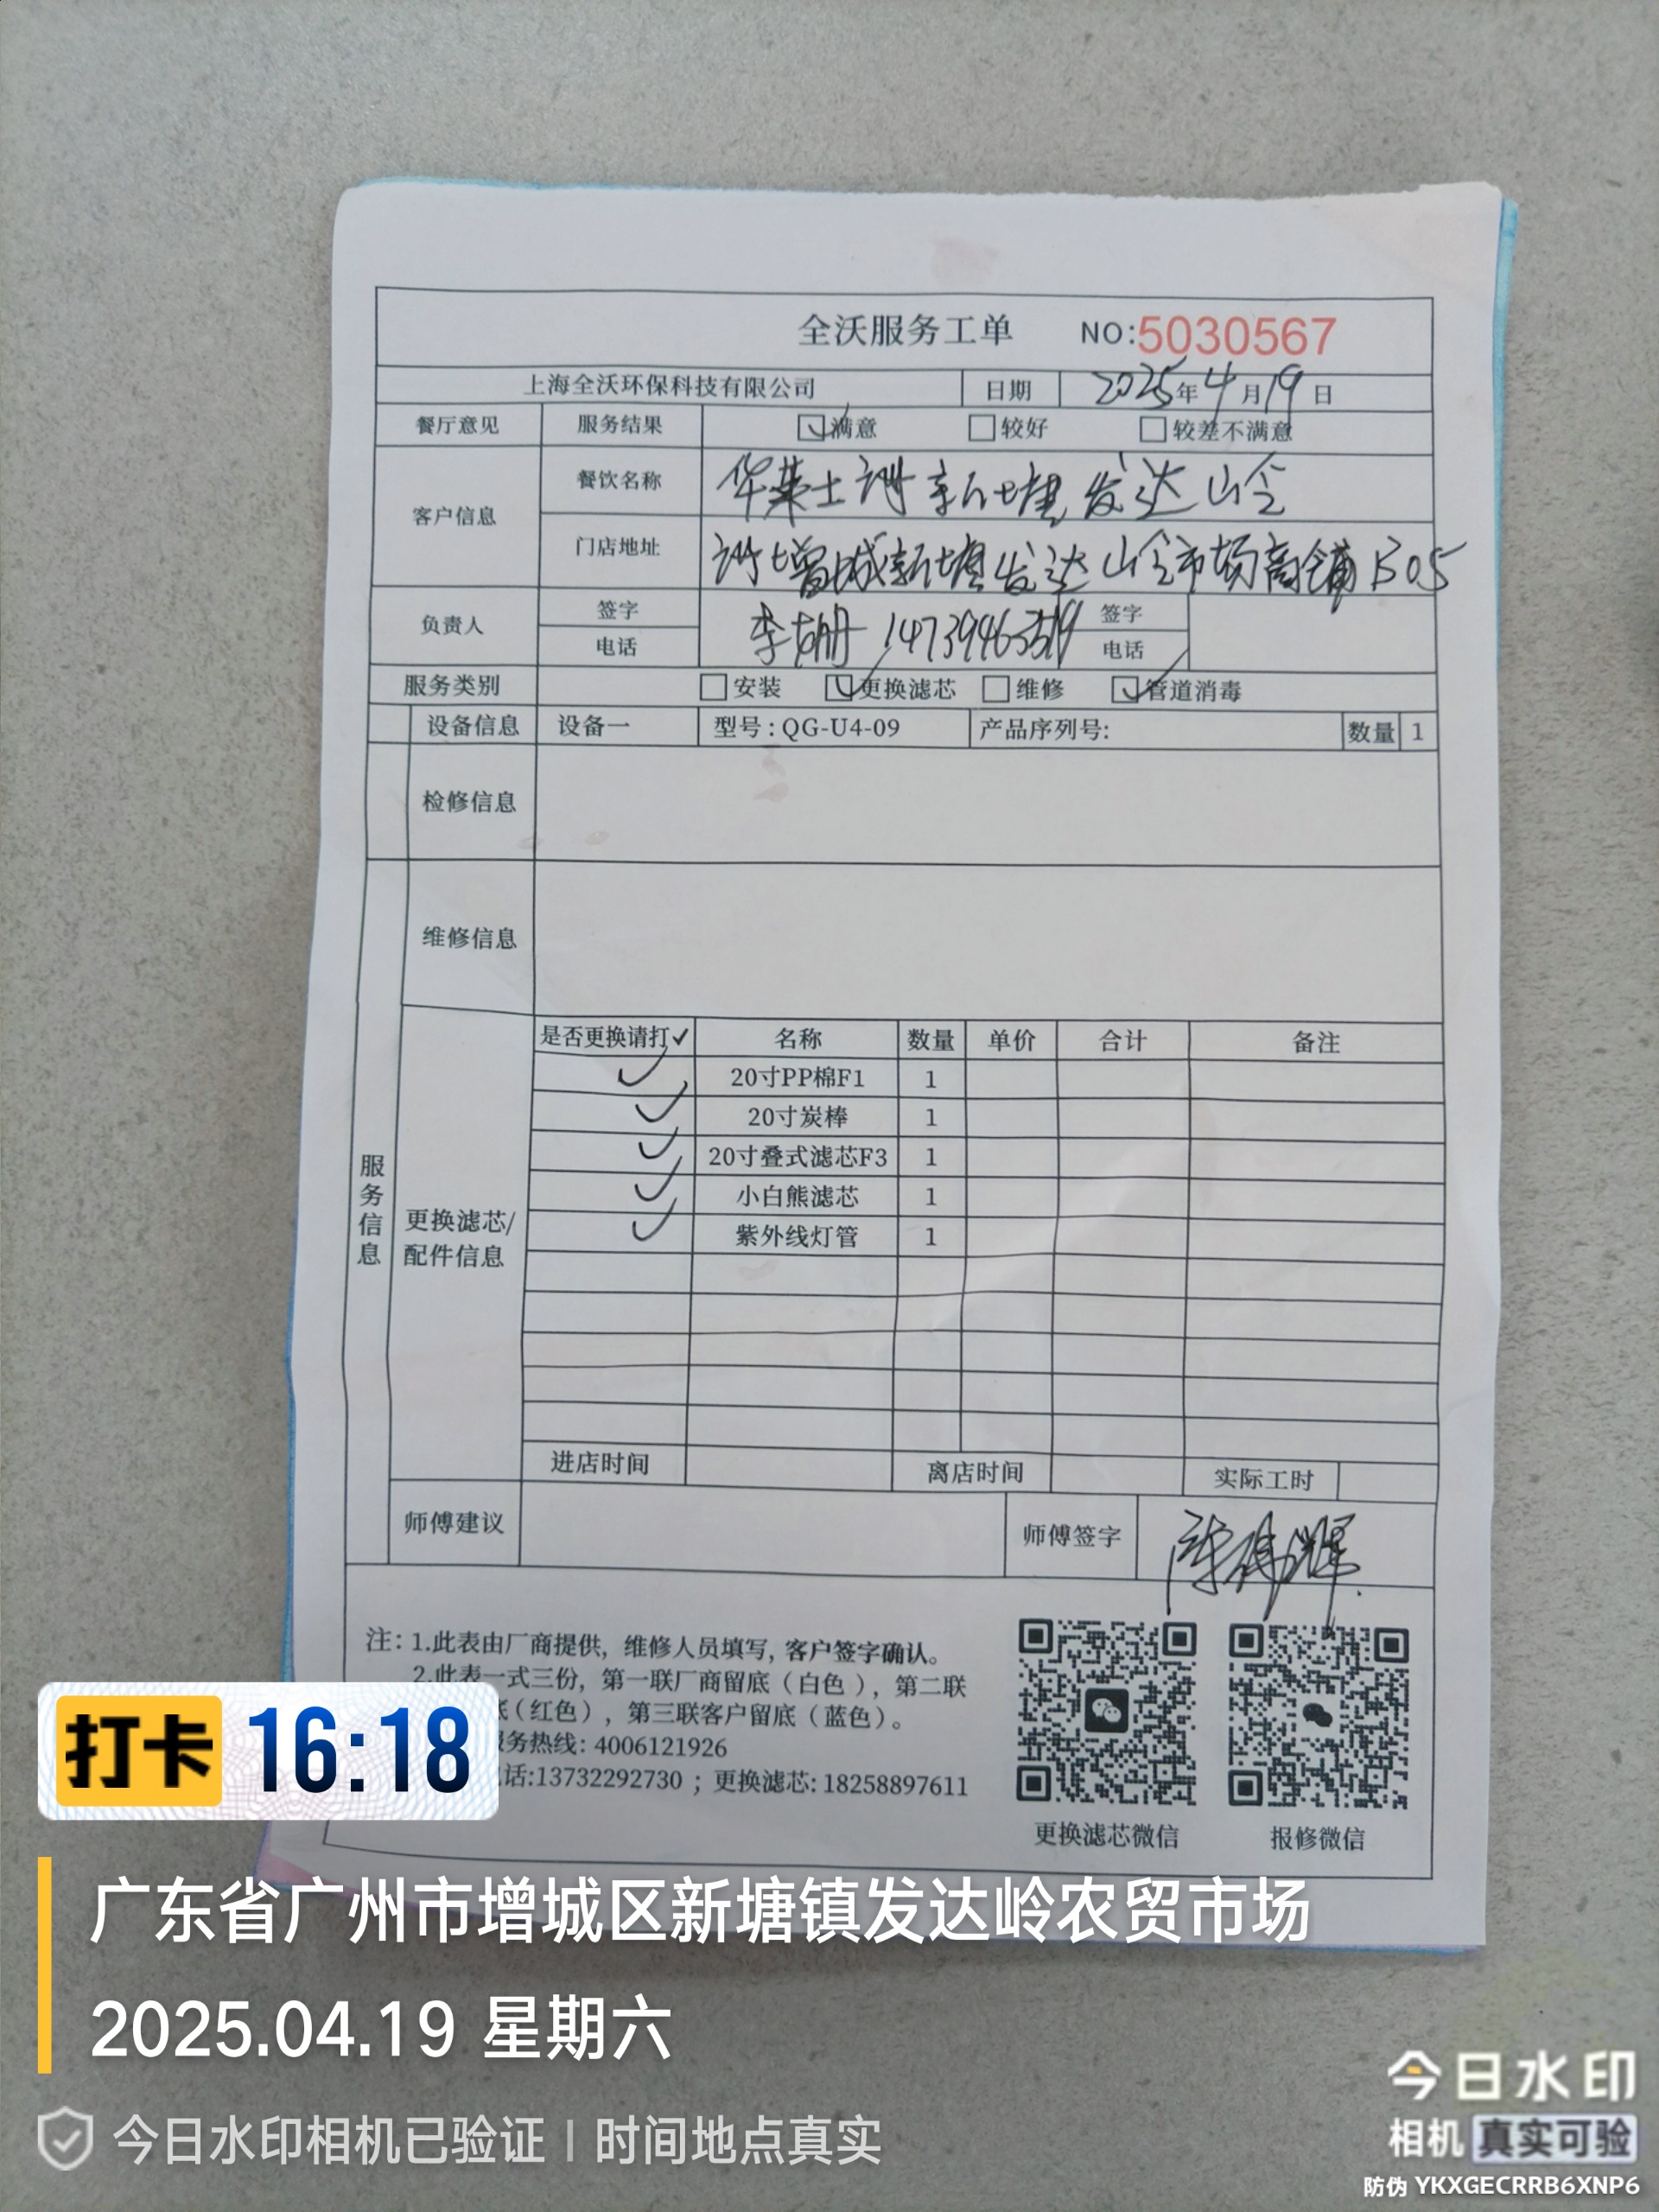 全沃服务工单 NO:5030567
上海全沃环保科技有限公司 日期 2025年4月19日
餐厅意见 服务结果 满意 较好 较差不满意
客户信息 餐饮名称 华莱士 新塘发达岭
门店地址 增城新塘发达岭市场商铺B05
负责人 签字 李 签字
电话 电话
服务类别 安装 更换滤芯 维修 管道消毒
设备信息 设备一 型号:QG-U4-09 产品序列号: 数量 1
检修信息
维修信息
服务信息
更换滤芯/配件信息
是否更换请打✓ 名称 数量 单价 合计 备注
✓ 20寸PP棉F1 1
✓ 20寸炭棒 1
✓ 20寸叠式滤芯F3 1
✓ 小白熊滤芯 1
✓ 紫外线灯管 1
进店时间 离店时间 实际工时
师傅建议 师傅签字 陈伟辉
注:1.此表由厂商提供,维修人员填写,客户签字确认。
2.此表一式三份,第一联厂商留底(白色),第二联
底(红色),第三联客户留底(蓝色)。
服务热线: 4006121926
话:13732292730 ; 更换滤芯: 18258897611
更换滤芯微信 报修微信
打卡 16:18
广东省广州市增城区新塘镇发达岭农贸市场
2025.04.19 星期六
今日水印相机已验证 | 时间地点真实
今日水印
相机 真实可验
防伪 YKXGECRRB6XNP6